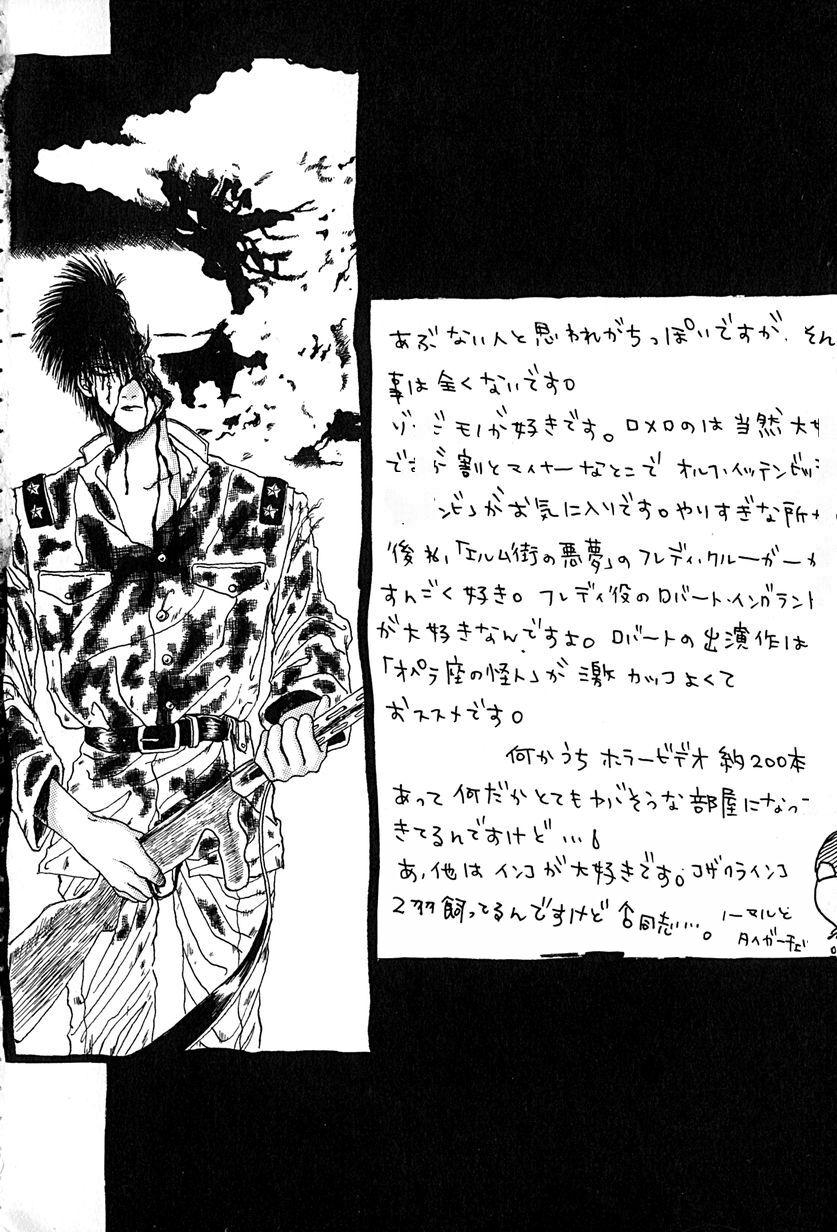 あぶない人と思われがちっぽいですが、そん
事は全くないです。
モノが好きです。ロメロのは当然大
割とマイナーなとこで オルフ・イッテンビッ
ンビ」がお気に入りです。やりすぎな所
後ね、「エルム街の悪夢」のフレディ・クルーガーが
すんごく好き。フレディ役のロバート・イングラント
が大好きなんですよ。ロバートの出演作は
「オペラ座の怪人」が 激 カッコよくて
おススメです。
何かうち ホラービデオ 約200本
あって 何だかとてもヤバそうな部屋になっ
きてるんですけど…。
あ、他は インコが 大好きです。コザクラインコ
2羽 飼ってるんですけど 同志…。 ノーマルと
タイガーチェ